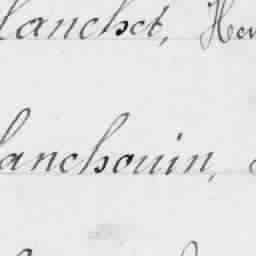 lanchet, Hen
lanchouin,